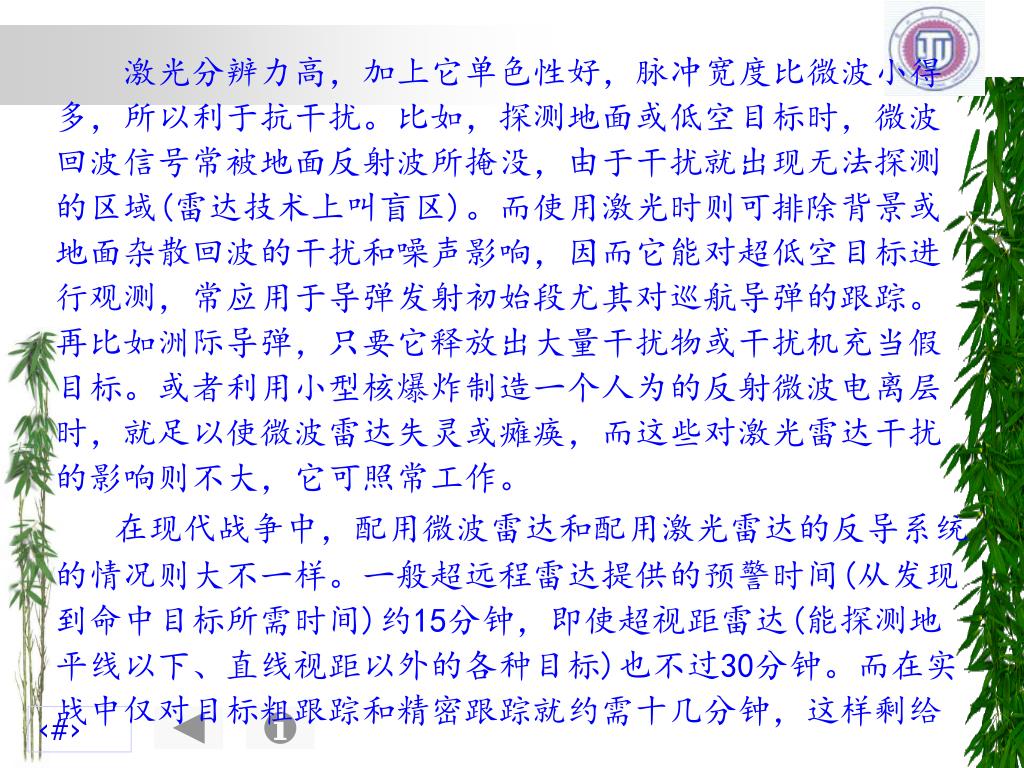 激光分辨力高，加上它单色性好，脉冲宽度比微波小得
多，所以利于抗干扰。比如，探测地面或低空目标时，微波
回波信号常被地面反射波所掩没，由于干扰就出现无法探测
的区域(雷达技术上叫盲区)。而使用激光时则可排除背景或
地面杂散回波的干扰和噪声影响，因而它能对超低空目标进
行观测，常应用于导弹发射初始段尤其对巡航导弹的跟踪。
再比如洲际导弹，只要它释放出大量干扰物或干扰机充当假
目标。或者利用小型核爆炸制造一个人为的反射微波电离层
时，就足以使微波雷达失灵或瘫痪，而这些对激光雷达干扰
的影响则不大，它可照常工作。
在现代战争中，配用微波雷达和配用激光雷达的反导系统
的情况则大不一样。一般超远程雷达提供的预警时间(从发现
到命中目标所需时间)约15分钟，即使超视距雷达(能探测地
平线以下、直线视距以外的各种目标)也不过30分钟。而在实
战中仅对目标粗跟踪和精密跟踪就约需十几分钟，这样剩给
‹#›
1